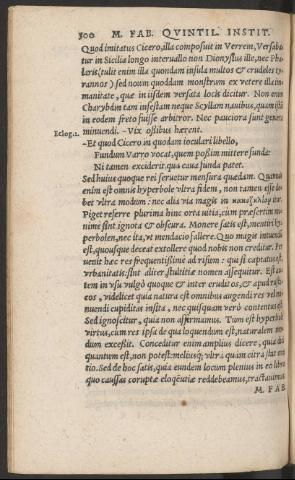 300 M. FAB. QVINTIL. INSTIT.
Quod imitatus Cicero, illa composuit in Verrem, Versaba
tur in Sicilia longo interuallo non Dionysius ille, nec Pha
laris (tulit enim illa quondam insula multos & crudeles ty
rannos) sed nouum quoddam monstrum ex vetere illa im
manitate, quæ in ijsdem versata locis dicitur. Non enim
Charybdin tam infestam neque Scyllam nauibus, quàm istū
in eodem freto fuisse arbitror. Nec pauciora sunt genera
Eclog.2. minuendi. -Vix ossibus hærent.
-Et quod Cicero in quodam ioculari libello,
Fundum Varro vocat, quem possim mittere funda:
Ni tamen exciderit, qua caua funda patet.
Sed huius quoque rei seruetur mensura quædam. Quamuis
enim est omnis hyperbole vltra fidem, non tamen esse de
bet vltra modum: nec alia via magis in κακοζηλίαν itur.
Piget referre plurima hinc orta vitia, cum præsertim mi
nime sint ignota & obscura. Monere satis est, mentiri hy
perbolen, nec ita, vt mendacio fallere. Quo magis intuendū
est, quousque deceat extollere quod nobis non creditur. Per
uenit hæc res frequentissimè ad risum: qui si captatus est,
vrbanitatis: sin aliter, stultitiæ nomen assequitur. Est au
tem in vsu vulgò quoque & inter eruditos, & apud rusti
cos, videlicet quia natura est omnibus augendi res vel mi
nuendi cupiditas insita, nec quisquam verò contentus est.
Sed ignoscitur, quia non affirmamus. Tum est hyperbole
virtus, cum res ipsa de qua loquendum est, naturalem mo
dum excessit. Conceditur enim amplius dicere, quia dici
quantum est, non potest: meliusq; vltra quàm citra stat ora
tio. Sed de hoc satis, quia eundem locum plenius in eo libro
quo caussas corruptæ eloquētiæ reddebamus, tractauimus.
M. FAB